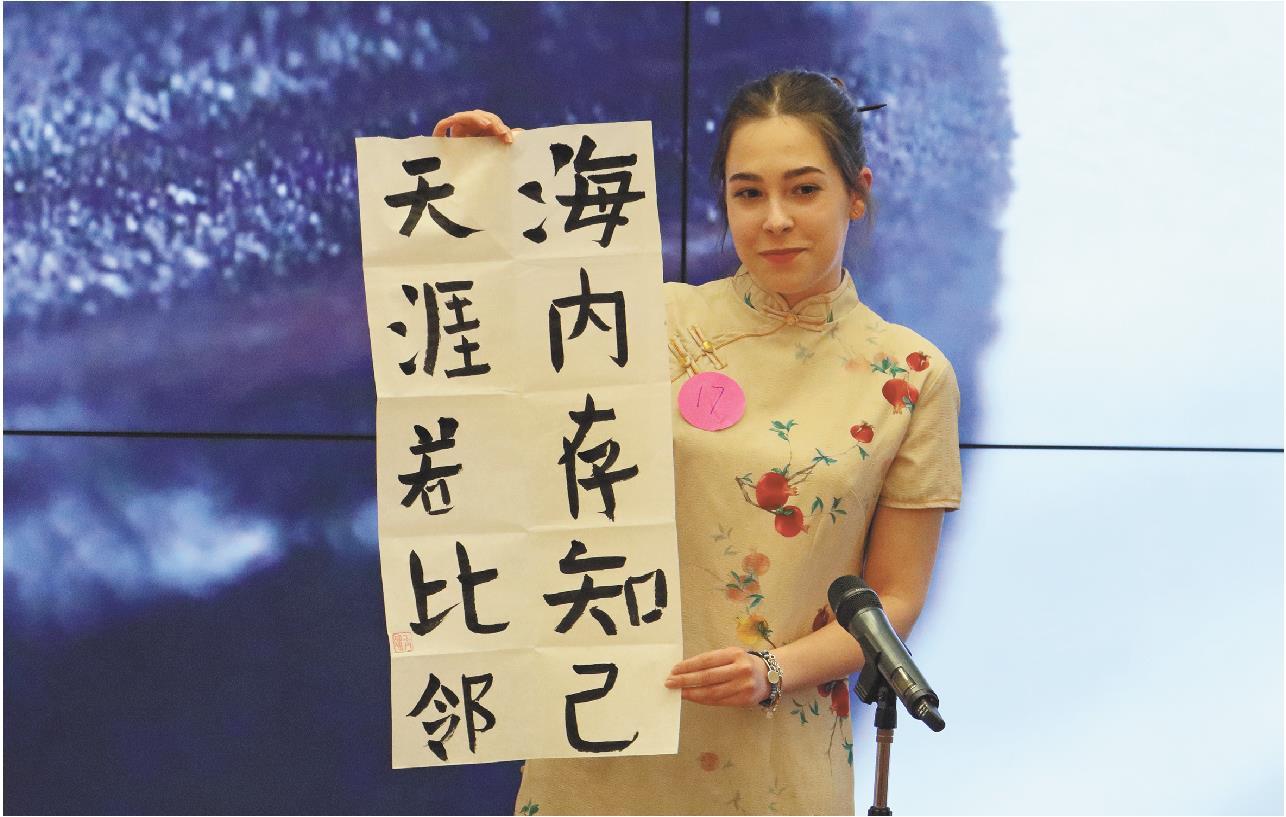 海内存知己
天涯若比邻
17